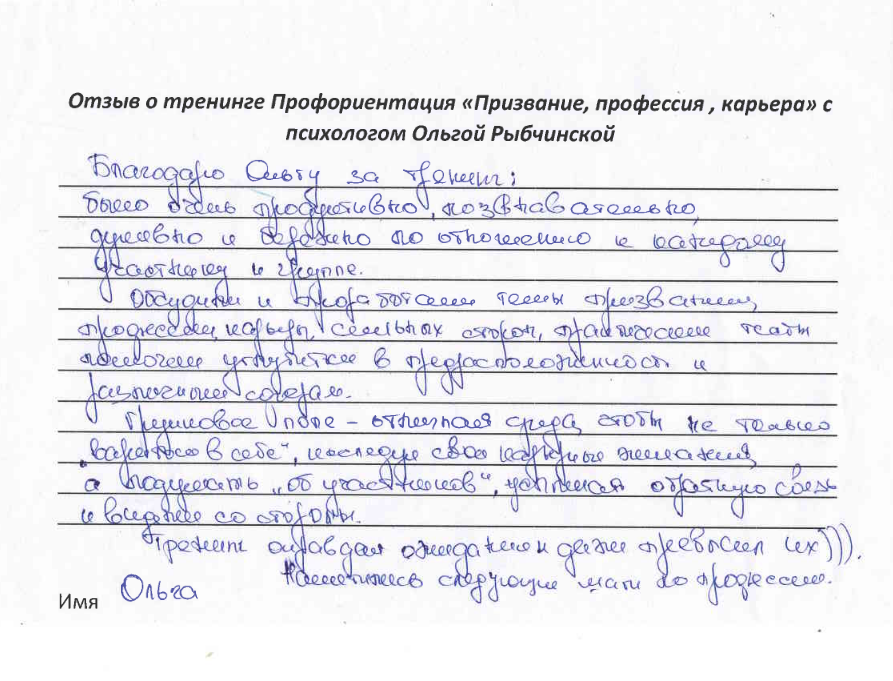 Отзыв о тренинге Профориентация «Призвание, профессия , карьера» с
психологом Ольгой Рыбчинской
Благодарю Ольгу за тренинг:
было очень продуктивно, познавательно,
душевно и бережно по отношению к каждому
участнику и группе.
Обсудили и проработали темы призвания,
профессии, карьеры, сильных сторон, практические
помогли углубиться в предрасположенность и
различным сферам.
Групповое поле – отличная среда, чтобы не только
„вариться в себе", исследуя свои карьерные желания,
а подумать „об участников", услышав обратную связь
и видение со стороны.
Тренинг оправдал ожидания и даже превысил их))).
Наметились следующие шаги по профессии.
Имя Ольга